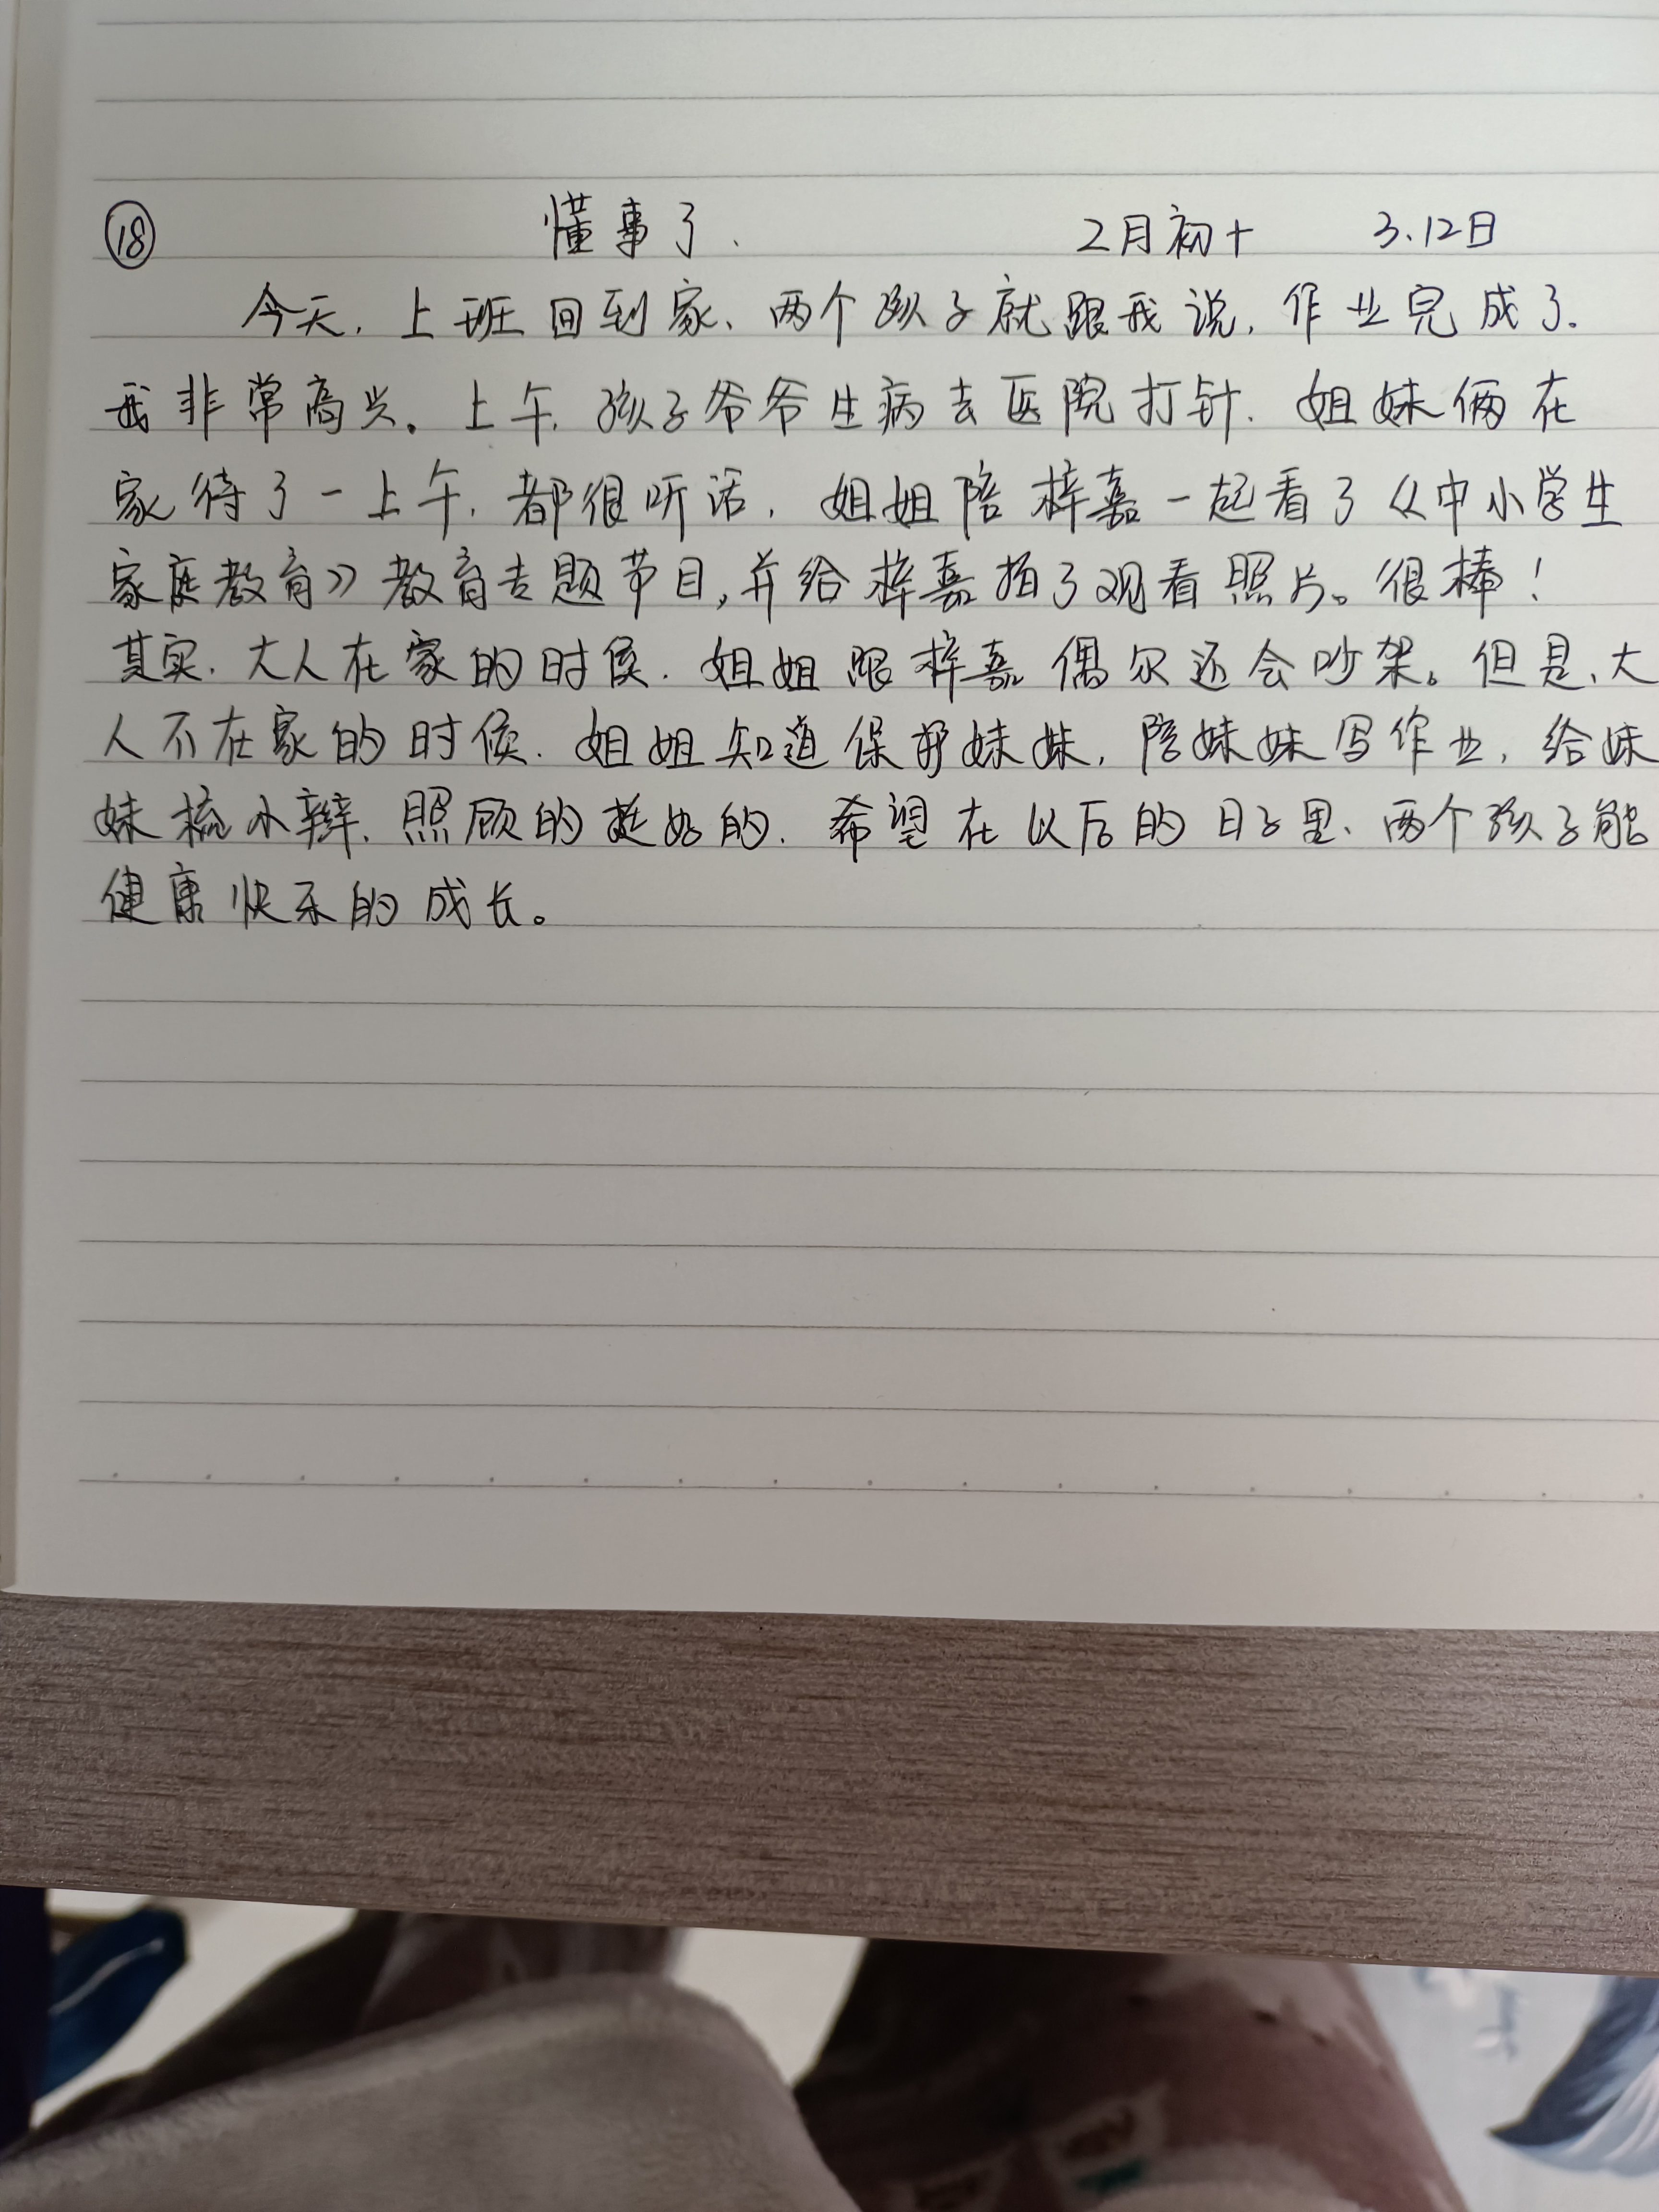 ⑱ 懂事了. 2月初十 3.12日
今天, 上班回到家、两个孩子就跟我说, 作业完成了.
我非常高兴。上午, 孩子爷爷生病去医院打针. 姐妹俩在
家待了一上午, 都很听话, 姐姐陪梓嘉一起看了《中小学生
家庭教育》教育专题节目,并给梓嘉拍了观看照片。很棒!
其实, 大人在家的时候. 姐姐跟梓嘉偶尔还会吵架。但是、大
人不在家的时候. 姐姐知道保护妹妹, 陪妹妹写作业, 给妹
妹梳小辫, 照顾的挺好的. 希望在以后的日子里、两个孩子能
健康快乐的成长。